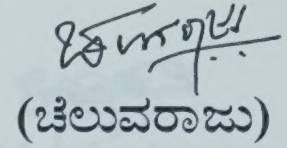 (ಚೆಲುವರಾಜು)